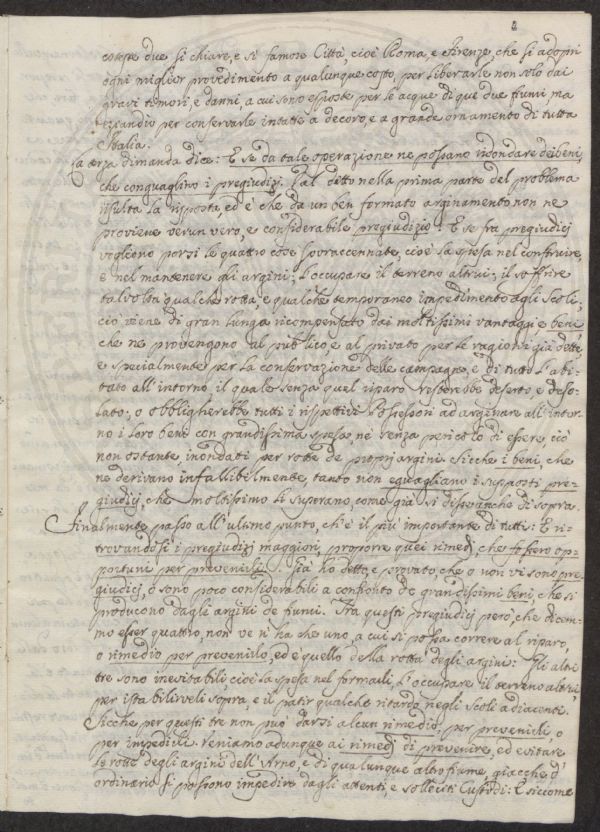 4
coteste due sì chiare, e sì famose Città, cioè Roma, e Firenze, che si adopri
ogni miglior provedimento a qualunque costo, per liberarle non solo dai
gravi timori, e danni, a cui sono esposte per le acque di que due fiumi, ma
eziandio per conservarle intatte a decoro, e a grande ornamento di tutta
Italia.
La terza dimanda dice: E se da tale operazione ne possano ridondare dei beni,
che conguaglino i pregiudizj. Dal detto nella prima parte del problema
risulta la risposta, ed è che da un ben formato arginamento non ne
proviene verun vero, e considerabile pregiudizio. E se fra pregiudizj
vogliono porsi le quattro cose sovraccennate, cioè la spesa nel construire,
e nel mantenere gli argini; l'occupare il terreno altrui; il soffrire
talvolta qualche rotta, e qualche temporaneo impedimento agli scoli;
ciò viene di gran lunga ricompensato dai moltissimi vantaggi e beni
che ne provengono al publico, e al privato per le ragioni già dette,
e specialmente per la conservazione delle campagne, e di tutto l'abi-
tato all'intorno, il quale senza quel riparo resterebbe deserto e deso-
lato; o obbligherebbe tutti i rispettivi Possessori ad arginare all'intor-
no i loro beni con grandissima spesa, nè senza pericolo di essere, ciò
non ostante, inondati per rotte de proprj argini. Sicche i beni, che
ne derivano infallibilmente, tanto non eguagliano i supposti pre-
giudizj, che moltissimo li superano, come già si disse anche di sopra.
Finalmente passo all'ultimo punto, ch'è il più importante di tutti: E ri-
trovandosi i pregiudizj maggiori, proporre quei rimedj che fossero op-
portuni per prevenirli. Già ho detto, e provato, che o non vi sono pre-
giudizj, o sono poco considerabili a confronto de grandissimi beni, che si
producono dagli argini de fiumi. Tra questi pregiudizj però, che dicem-
mo esser quattro, non ve n'ha che uno, a cui si possa correre al riparo,
o rimedio per prevenirlo, ed è quello della rotta degli argini: Gli altri
tre sono inevitabili cioè la spesa nel formarli, l'occupare il terreno altrui
per istabilirveli sopra, e il patir qualche ritardo negli scoli adiacenti.
Sicche per questi tre non può darsi alcun rimedio, per prevenirli, o
per impedirli. Veniamo adunque ai rimedj di prevenire, ed evitare
le rotte degli argini dell'Arno, e di qualunque altro fiume, giacche d'
ordinario si possono impedire dagli attenti, e solleciti Custodi: E siccome